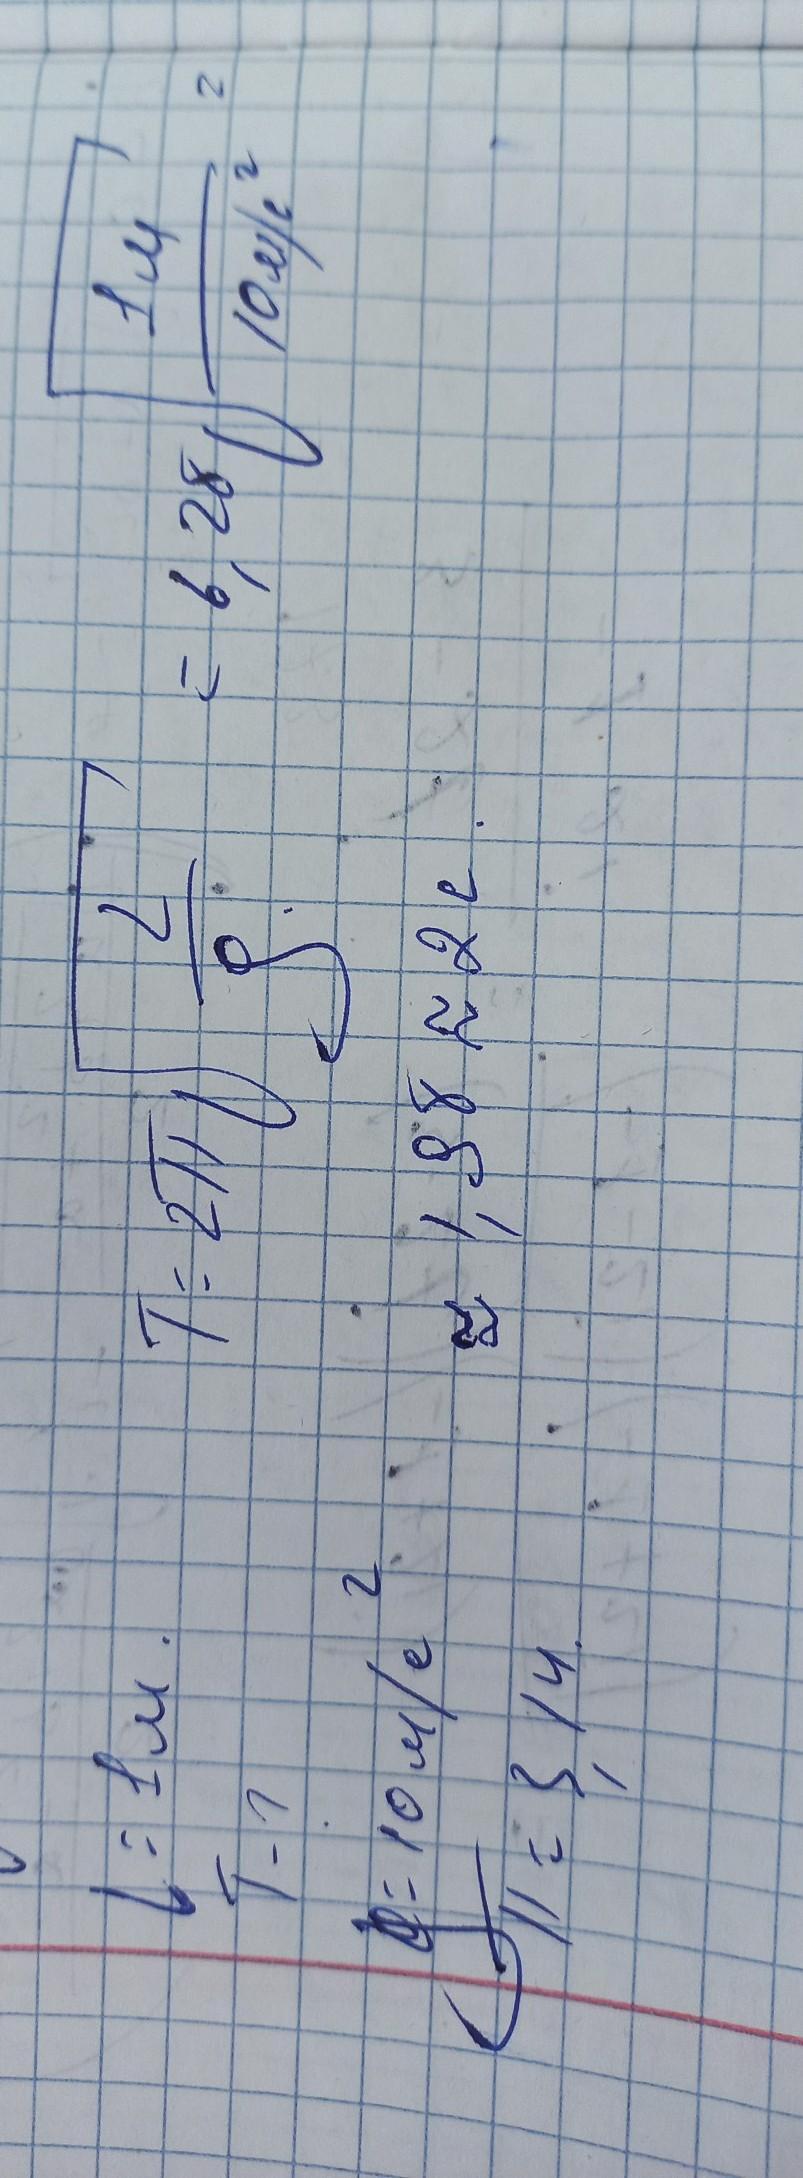 l = 1м.
T - ?
g = 10 м/с²
π = 3,14.
T = 2π√(L/g) = 6,28√(1м/(10м/с²)) ≈
≈ 1,98 ≈ 2с.